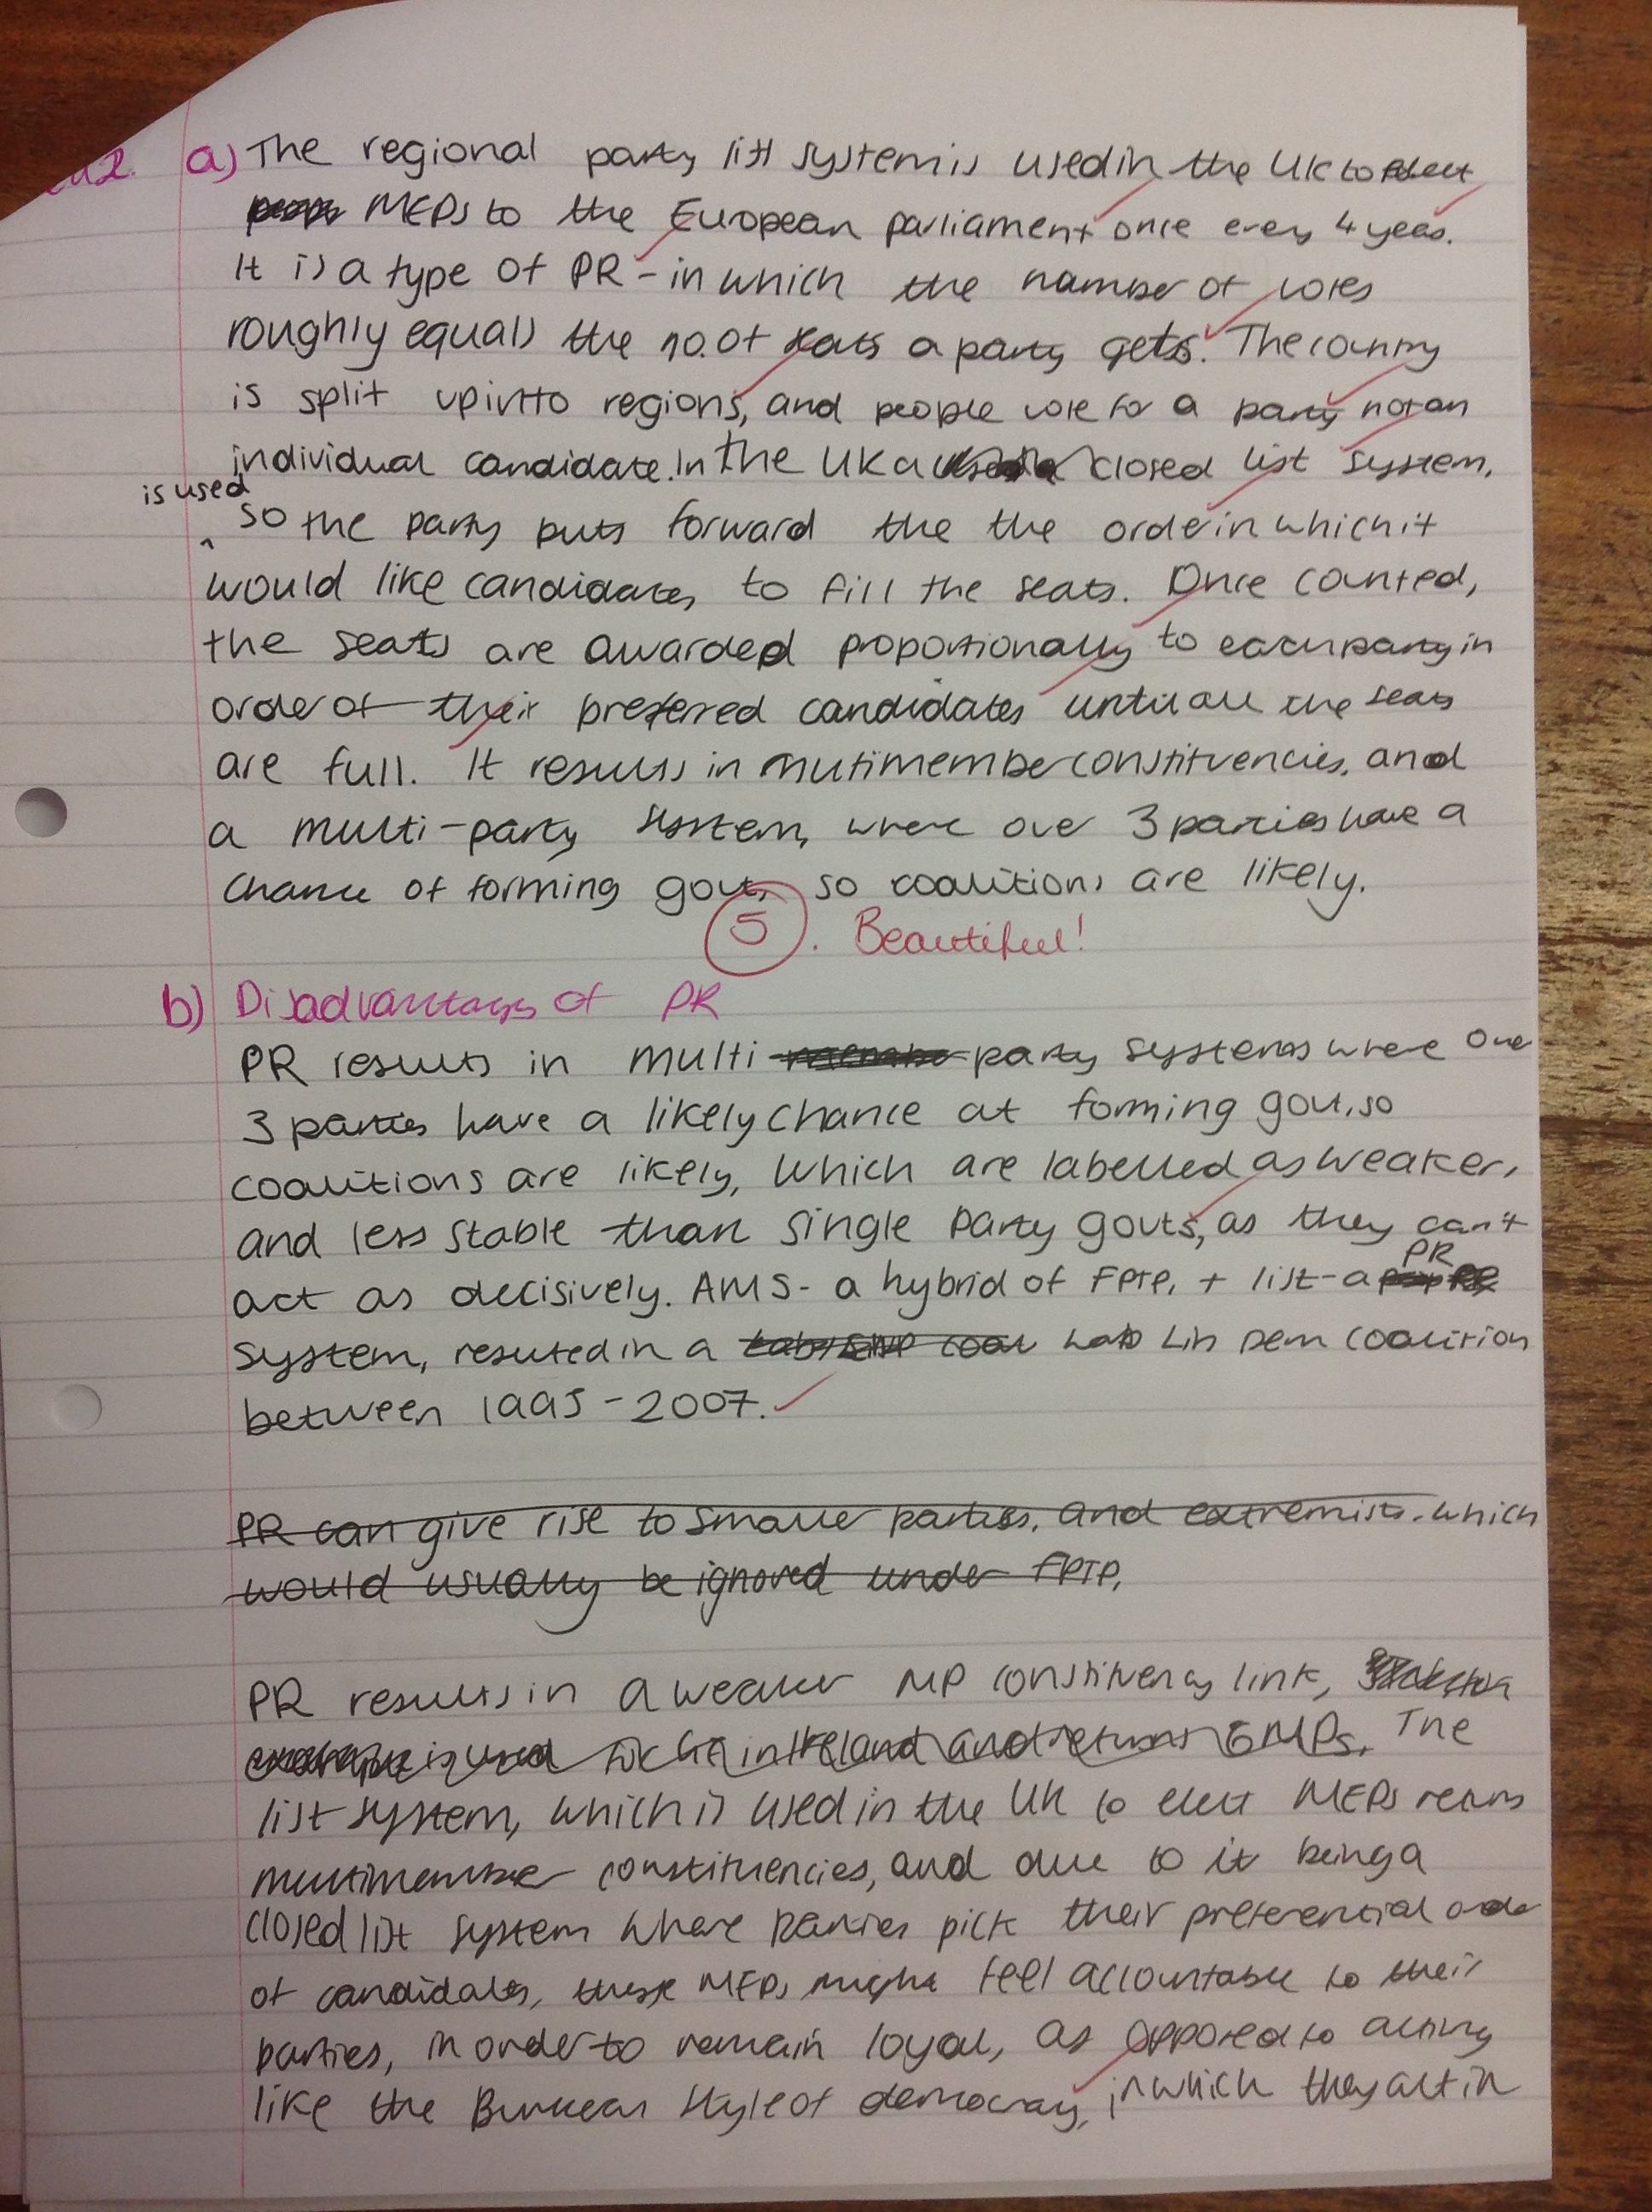 a) The regional party list system is used in the UK to elect
MEPs to the European parliament once every 4 years.
It is a type of PR - in which the number of votes
roughly equals the no. of seats a party gets. The country
is split up into regions, and people vote for a party not an
individual candidate. In the UK a closed list system,
is used
so the party puts forward the the order in which it
would like candidates to fill the seats. Once counted,
the seats are awarded proportionally to each party in
order of their preferred candidates until all the seats
are full. It results in mutimember constituencies, and
a multi-party system, where over 3 parties have a
chance of forming govt, so coalitions are likely.
5. Beautiful!
b) Disadvantages of PR
PR results in multi party systems where over
3 parties have a likely chance at forming gov, so
coalitions are likely, which are labelled as weaker,
and less stable than single party govts, as they can't
PR
act as decisively. AMS - a hybrid of FPTP, + list - a
system, resuted in a Lab Lib Dem coalition
between 1995 - 2007.
PR can give rise to smaller parties, and extremists. which
would usually be ignored under FPTP.
PR results in a weaker MP constituency link,
is used for GE in Ireland and returns 6 MPs. The
list system, which is used in the UK to elect MEPs returns
multimember constituencies, and due to it being a
closed list system where parties pick their preferential order
of candidates, these MEPs might feel accountable to their
parties, in order to remain loyal, as opposed to acting
like the Burkean style of democracy, in which they act in